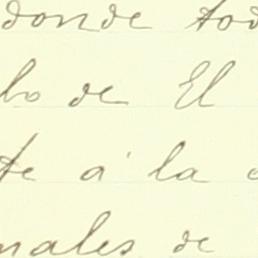 donde tod
lo de El
te á la
nales de